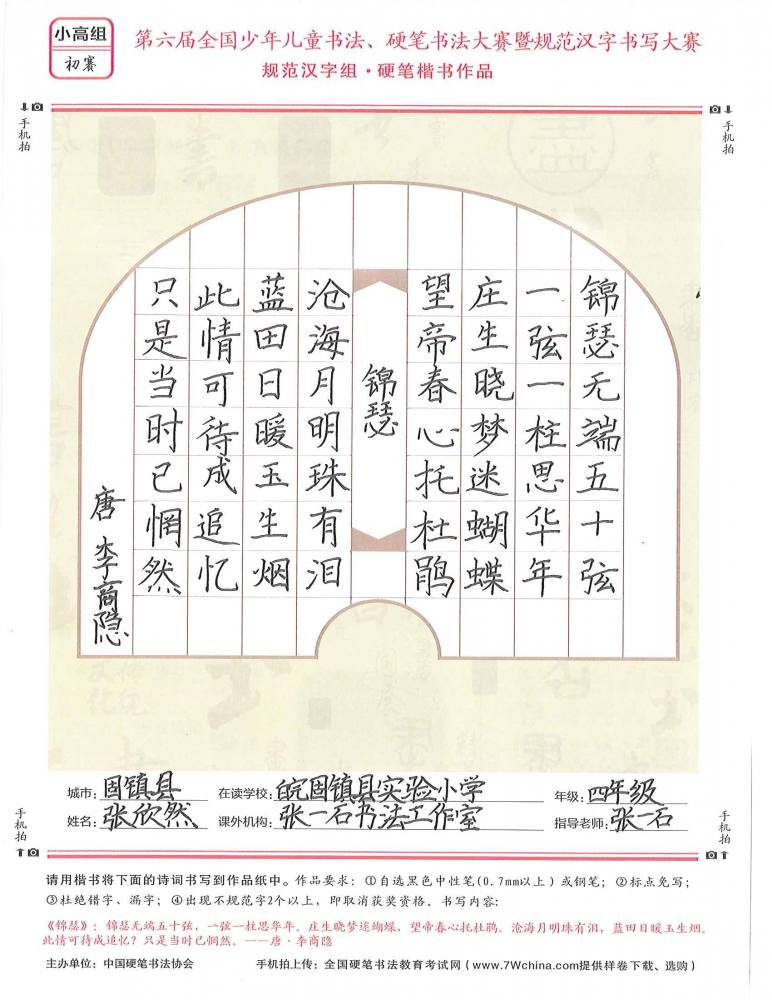 小高组
初赛
第六届全国少年儿童书法、硬笔书法大赛暨规范汉字书写大赛
规范汉字组·硬笔楷书作品
手机拍
手机拍
锦瑟无端五十弦
一弦一柱思华年
庄生晓梦迷蝴蝶
望帝春心托杜鹃
锦瑟
沧海月明珠有泪
蓝田日暖玉生烟
此情可待成追忆
只是当时已惘然
唐 李商隐
手机拍
手机拍
城市:固镇县 在读学校:皖固镇县实验小学 年级:四年级
姓名:张欣然 课外机构:张一石书法工作室 指导老师:张一石
请用楷书将下面的诗词书写到作品纸中。作品要求:①自选黑色中性笔(0.7mm以上)或钢笔;②标点免写;
③杜绝错字、漏字;④出现不规范字2个以上,即取消获奖资格。书写内容:
《锦瑟》:锦瑟无端五十弦,一弦一柱思华年。庄生晓梦迷蝴蝶,望帝春心托杜鹃。沧海月明珠有泪,蓝田日暖玉生烟。
此情可待成追忆?只是当时已惘然。——唐·李商隐
主办单位:中国硬笔书法协会 手机拍上传:全国硬笔书法教育考试网(www.7Wchina.com提供样卷下载、选购)